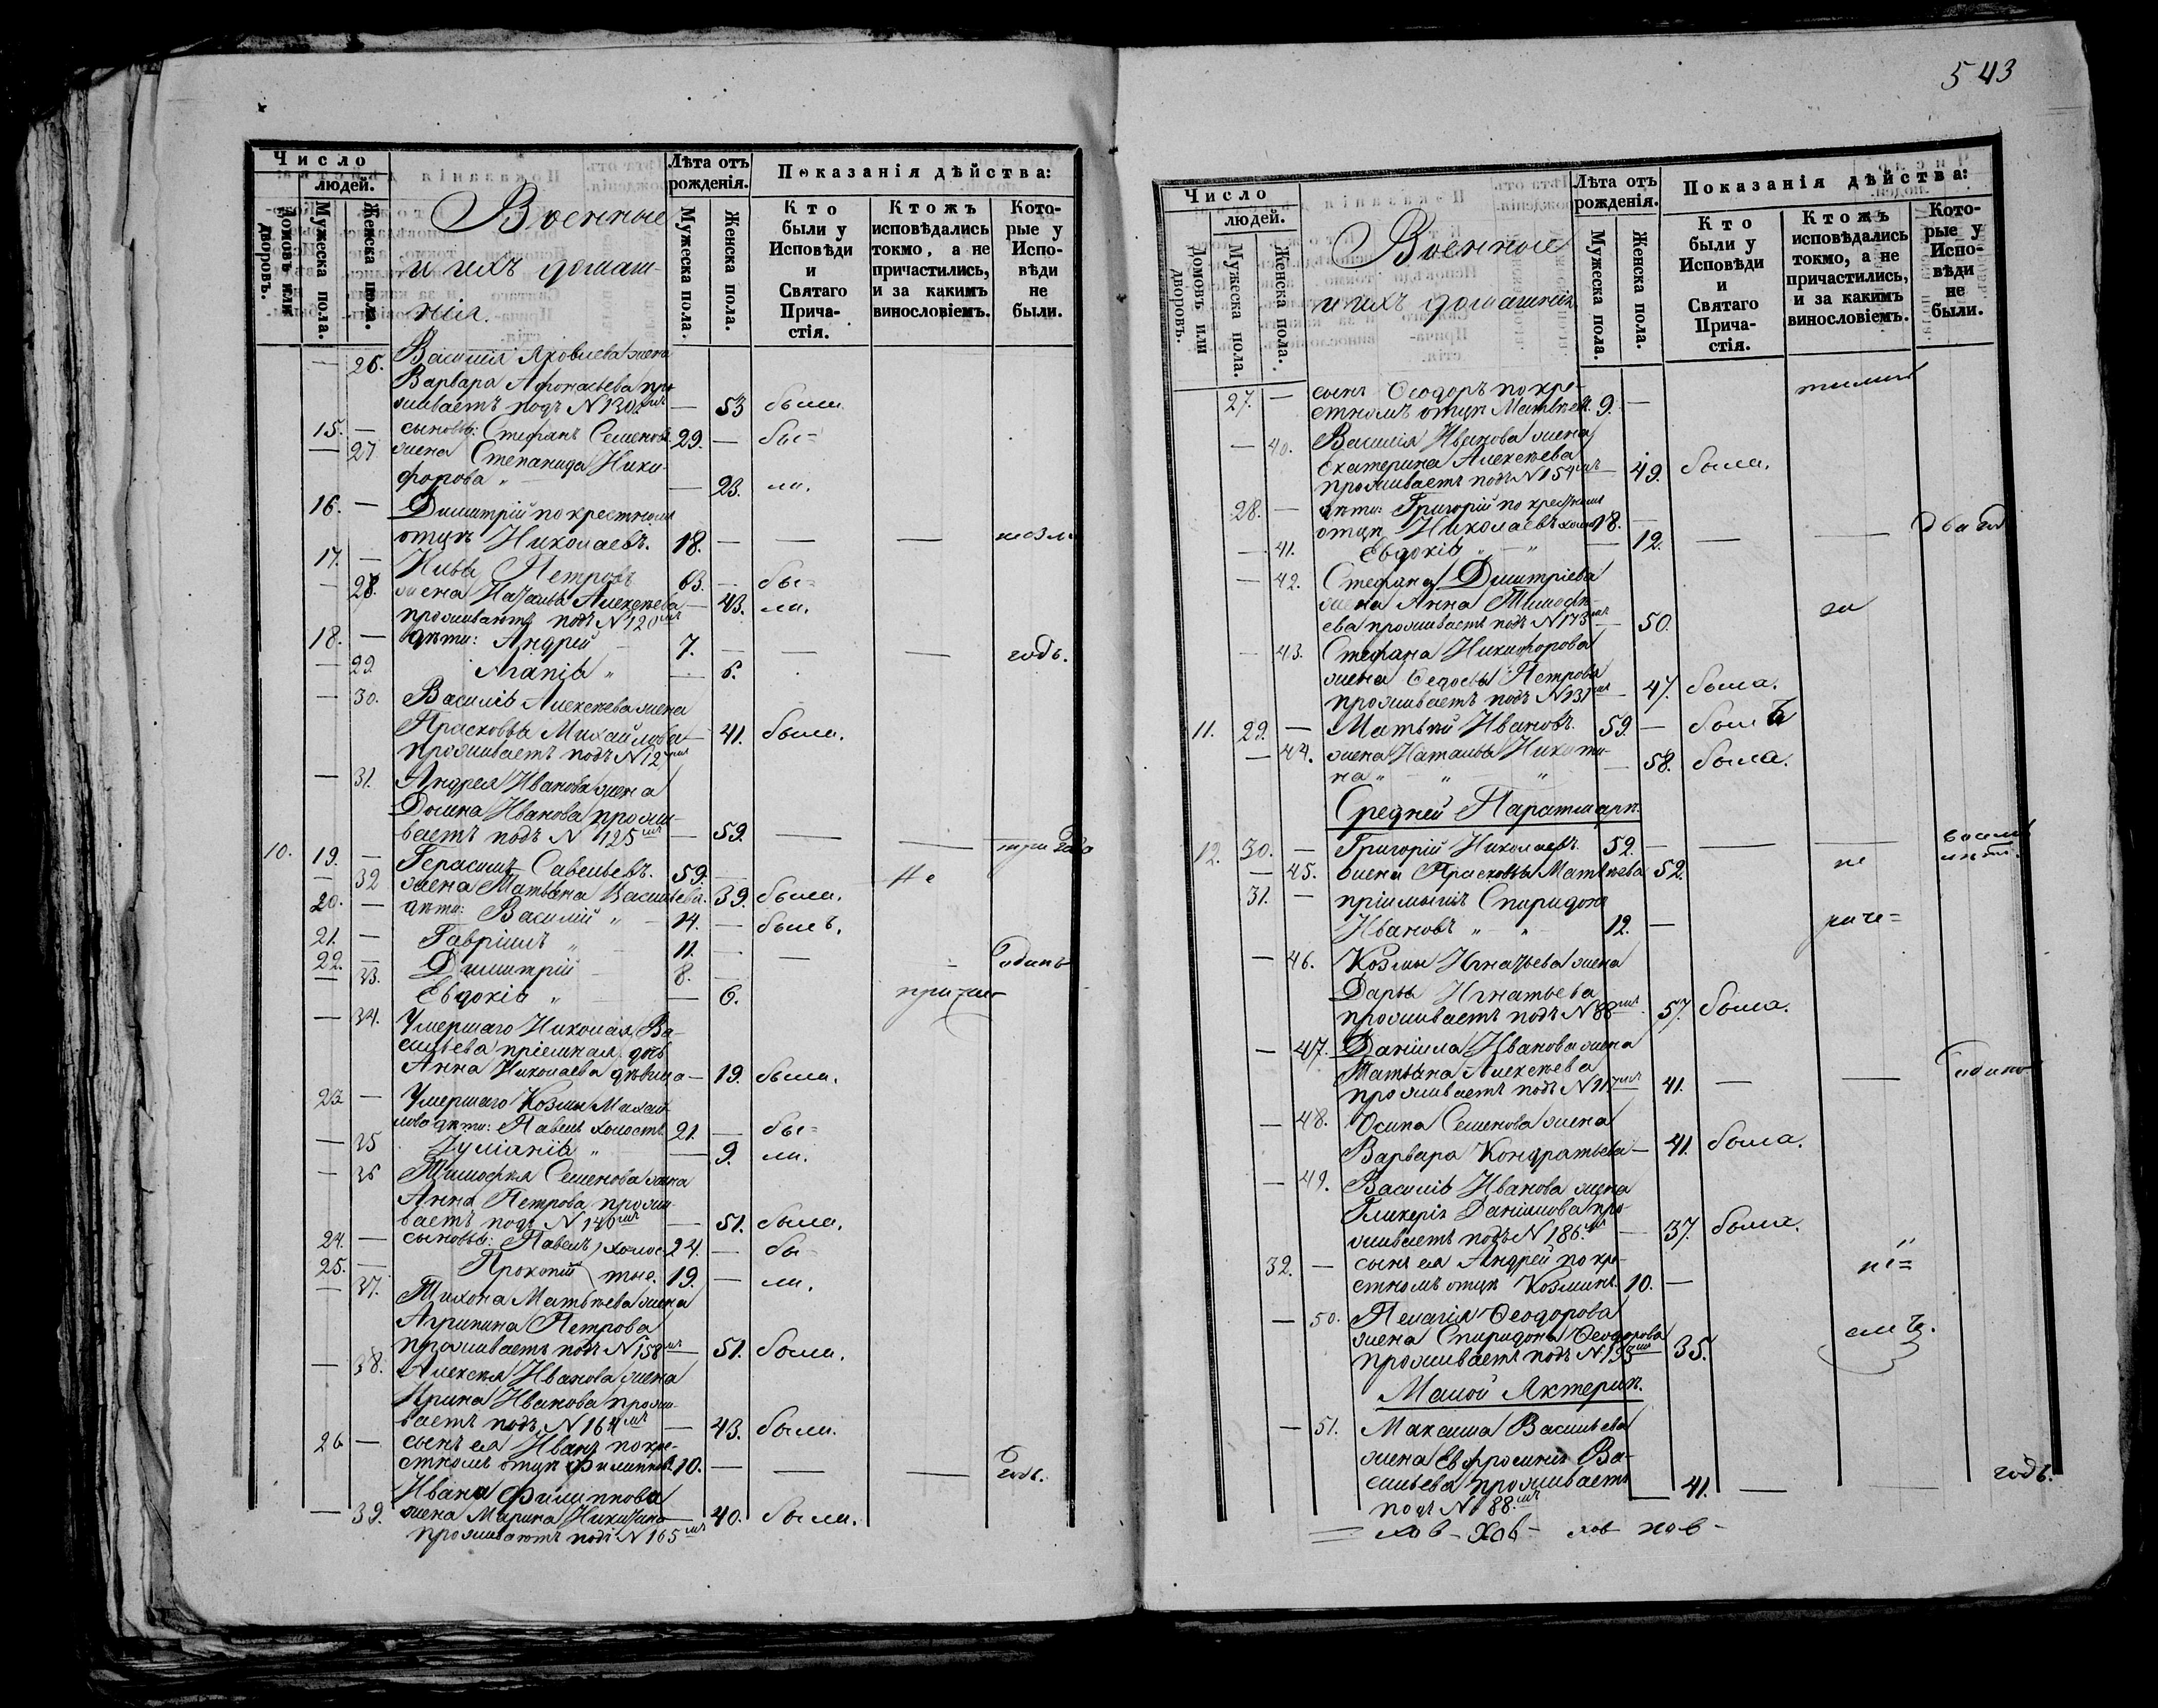 543
Число
людей.
Домовъ или дворовъ.
Мужеска пола.
Женска пола.
Военные
и ихъ домаш-
нія.
Лѣта отъ рожденія.
Мужеска пола.
Женска пола.
Показанія дѣйства:
Кто были у Исповѣди и Святаго Прича-стія.
Ктожъ исповѣдались токмо, а не причастились, и за какимъ винословіемъ.
Кото-рые у Испо-вѣди не были.
— 26. Василія Яковлева жена
Варвара Афонасьева про
живаетъ подъ N 130мъ — 53 была
15. — сыновья: Стефанъ Семеновъ 29. — бы=
— 27 жена Степанида Ники-
форова " — 23. ли.
16. — Димитрій по крестном
отцѣ Николаевъ. 18. — — —
17. — Петровъ 63. — бы=
— 28. жена Наталья Алексѣева — 43. ли.
проживаютъ подъ N 120мъ
18. — дѣти: Андрей 7. — — — годъ.
— 29. Агапія " — 6.
— 30. Василія Алексѣева жена
Прасковья Михайлова — 41. была.
проживаетъ подъ N 12мъ
— 31. Андрея Иванова жена
Домна Иванова прожи-
ваетъ подъ N 125мъ — 59. — — три года
10. 19. — Герасимъ Савельевъ. 59. — Не
— 32 жена Татьяна Васильева. 39. была.
20. — дѣти: Василій " — 14. — былъ.
21. — Гавріилъ " 11. — —
22. — Димитрій 8. — одинъ
— 33. Евдокія " — 6. причас
— 34. Умершаго Николая Ва-
сильева пріемная дочь
Анна Николаева дѣвица — 19. была.
23 — Умершаго Козмы Михай
лова дѣти: Павелъ холостъ 21. — бы=
— 35 Іуліанія " — 9. ли.
— 36 Тимофея Семенова жена
Анна Петрова прожи-
ваетъ подъ N 140мъ — 51. была.
24. — сыновья: Павелъ холос 24. — бы=
25. — Прокопій тые. 19. — ли.
— 37. Тихона Матвѣева жена
Агрипина Петрова
проживаетъ подъ N 158мъ — 51. была.
— 38. Алексѣя Иванова жена
Ирина Иванова прожи-
ваетъ подъ N 164мъ — 43. была.
26 — сынъ ея Иванъ по кре-
стномъ отцѣ Филиповъ 10. — — — годъ.
Ивана Филиппова
— 39. жена Марина Никитина — 40. была.
проживаютъ подъ N 165мъ
Число
людей.
Домовъ или дворовъ.
Мужеска пола.
Женска пола.
Военные
и ихъ домашнія
Лѣта отъ рожденія.
Мужеска пола.
Женска пола.
Показанія дѣйства:
Кто были у Исповѣди и Святаго Прича-стія.
Ктожъ исповѣдались токмо, а не причастились, и за какимъ винословіемъ.
Кото-рые у Испо-вѣди не были.
27. — сынъ Ѳеодоръ по кре-
стномъ отцѣ Матвѣевъ. 9. —
— 40. Василія Иванова жена
Екатерина Алексѣева
проживаетъ подъ N 154мъ — 49. была.
28. — дѣти: Григорій по крестном
отцѣ Николаевъ холос 18. — два год
— 41. Евдокія " — 12. — —
— 42. Стефана Димитріева
жена Анна Тимофѣ-
ева проживаетъ подъ N 173мъ — 50. за
— 43. Стефана Никифорова
жена Ѳедосья Петрова
проживаетъ подъ N 131мъ — 47. была.
11. 29. — Матвѣй Ивановъ. 59. — былъ
— 44. жена Наталья Никити-
на " — 58. была.
Средней Паратмарѣ.
12. 30. — Григорій Николаевъ. 52. — — — восемь
— 45. жена Прасковья Матвѣева 52. не лѣтъ.
31. — пріемышъ Спиридонъ
Ивановъ " " 12. — раче=
— 46. Козмы Игнатьева жена
Дарья Игнатьева
проживаетъ подъ N 88мъ. 57. была.
— 47. Даніила Иванова жена
Татьяна Алексѣева
проживаетъ подъ N 117мъ 41. — — одинъ
— 48. Осипа Семенова жена
Варвара Кондратьева — 41. была.
— 49. Василія Иванова жена
Гликерія Даніилова про-
живаетъ подъ N 186.мъ — 37. была.
32. — сынъ ея Андрей по кре-
стномъ отцѣ Козминъ. 10. — ні=
— 50. Пелагія Ѳеодорова
жена Спиридона Ѳеодорова
проживаетъ подъ N 195мъ 35. емъ.
Малой Яктерик.
— 51. Максима Васильева
жена Евфросинія Ва-
сильева проживаетъ
подъ N 188.мъ — 41. — — годъ.